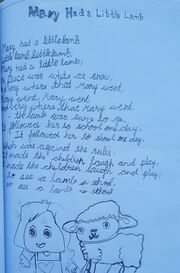 Mary Had a Little Lamb
Mary had a little lamb
little lamb little lamb,
Mary had a little lamb,
fleece was white as snow,
every where that Mary went,
Mary went, Mary went
every where that Mary went
the lamb was sure to go,
followed her to school one day.
It followed her to school one day.
which was against the rules.
It made the children laugh and play,
made the children laugh, and play,
to see a lamb in school.
to see a lamb in school